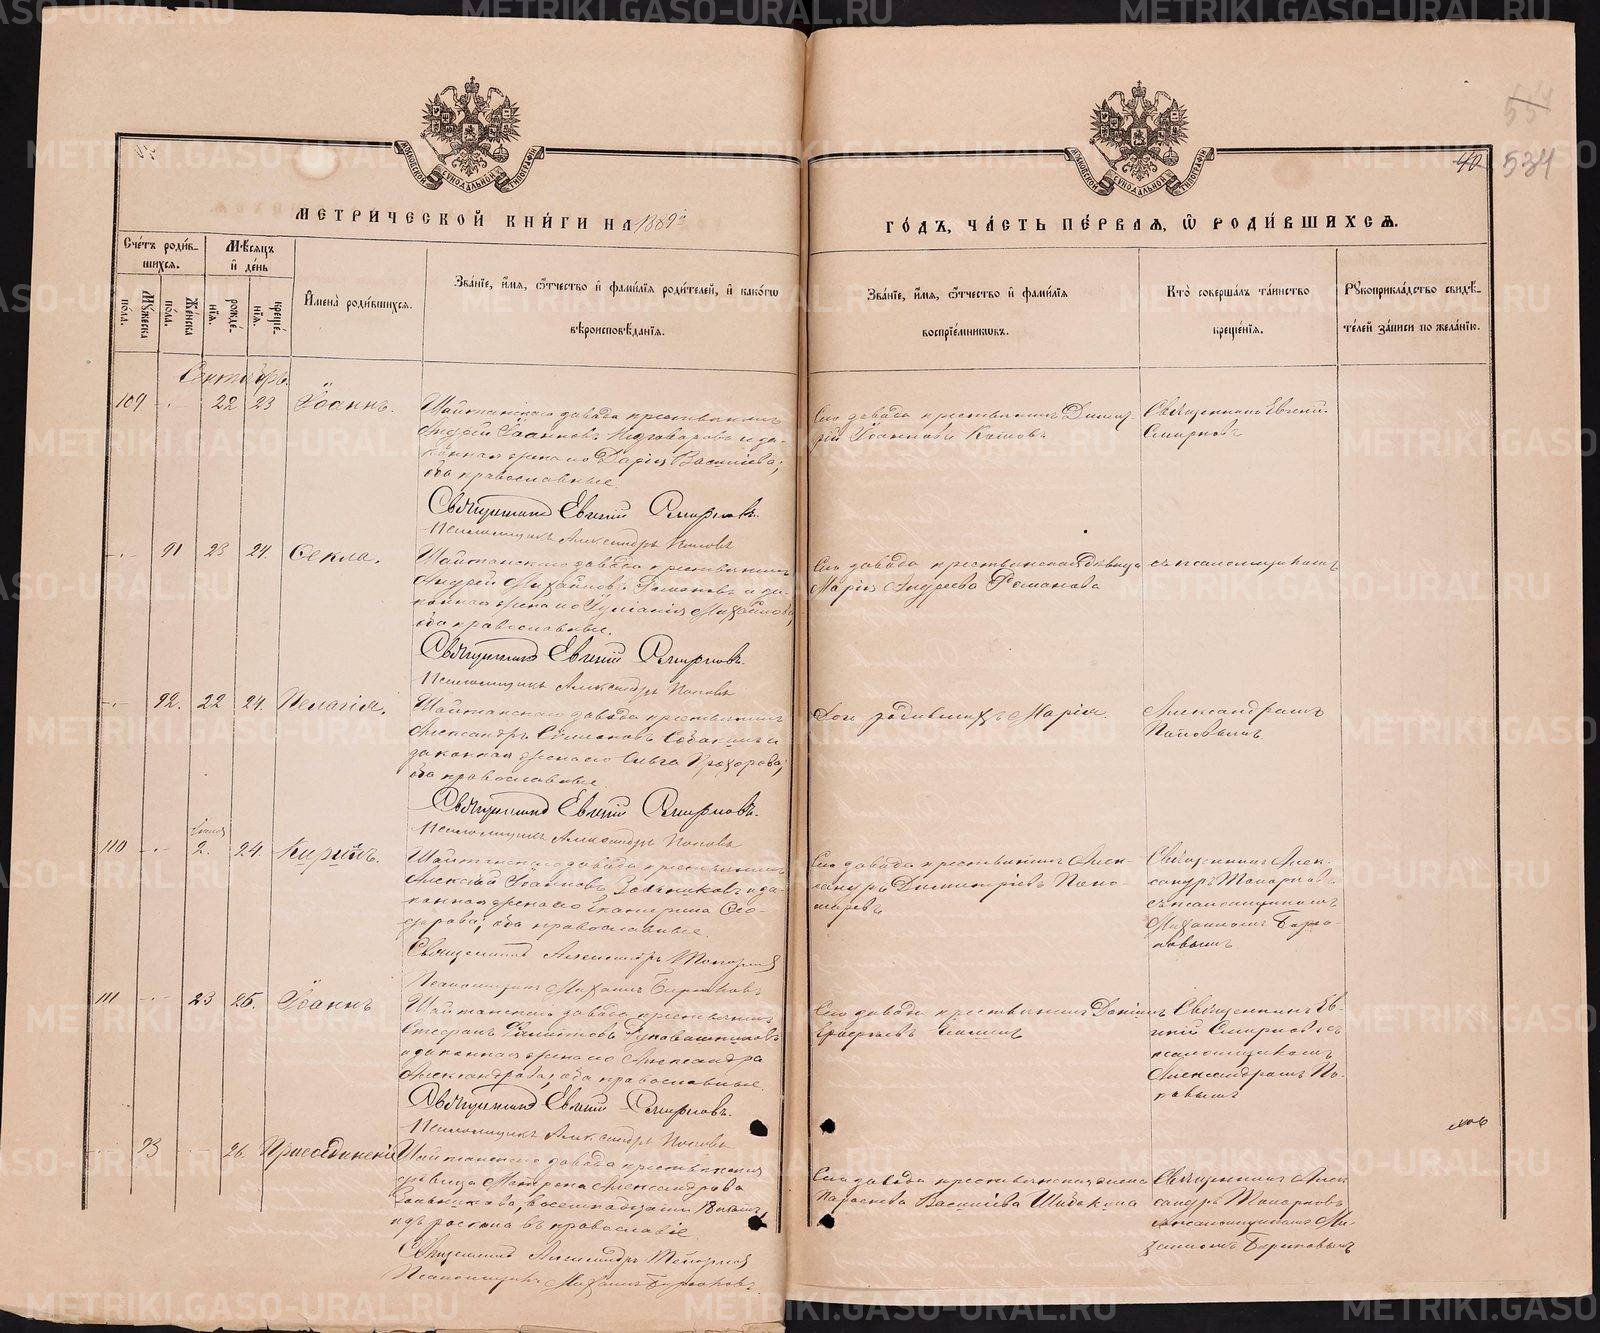 МОСКОВСКОЙ СѴНОДАЛЬНОЙ ТИПОГРАФІИ
МОСКОВСКОЙ СѴНОДАЛЬНОЙ ТИПОГРАФІИ
40 534
МЕТРИЧЕСКОЙ КНИ́ГИ НА 1889й
ГО́ДЪ, ЧА́СТЬ ПЕ́РВАЯ, Ѡ҆ РОДИ́ВШИХСЯ.
Сче́тъ роди́в-
шихся.
Мѣ́сяцъ
и҆ де́нь
Мꙋ́жеска
по́ла.
Же́нска
по́ла.
рожде́-
нія.
креще́-
нія.
И҆мена̀ роди́вшихся.
Зва́ніе, и҆́мя, ѻ҆́тчество и҆ фами́лія роди́телей, и҆ како́гѡ
вѣроисповѣ́данія.
Зва́ніе, и҆́мя, ѻ҆́тчество и҆ фами́лія
воспріе́мниковъ.
Кто̀ соверша́лъ та́инство
креще́нія.
Рꙋкоприкла́дство свидѣ́-
телей за́писи по жела́нію.
Октябрь
109 22 23 Іоаннъ.
Шайтанскаго завода крестьянинъ
Андрей Іоанновъ и за-
конная жена его Дарія Василіева;
оба православные.
Священникъ Евгеній Смирновъ.
Псаломщикъ Александръ Поповъ
Сего завода крестьянинъ Димит-
рій Іоанновъ Котовъ
Священникъ Евгеній
Смирновъ
91 23 24. Ѳекла.
Шайтанскаго завода крестьянинъ
Андрей Михайловъ Романовъ и за-
конная жена его Іуліанія Михайлова,
оба православные.
Священникъ Евгеній Смирновъ.
Псаломщикъ Александръ Поповъ
Сего завода крестьянская дѣвица
Марія Андреева Романова
съ псаломщикомъ
92. 22 24. Пелагія.
Шайтанскаго завода крестьянинъ
Александръ Симеоновъ Собакинъ и
законная жена его Ольга Прохорова;
оба православные
Священникъ Евгеній Смирновъ.
Псаломщикъ Александръ Поповъ
Дочь родившихъ Марія.
Александромъ
Поповымъ.
110 2. 24. Кириллъ.
Шайтанскаго завода крестьянинъ
Алексѣй Іоанновъ и за-
конная жена его Екатерина Ѳео-
дорова; оба православные.
Священникъ Александръ Топорковъ
Псаломщикъ Михаилъ Бирюковъ
Сего завода крестьянинъ Алек-
сандръ Димитріевъ Поно-
маревъ
Священникъ Алек-
сандръ Топорковъ
съ псаломщикомъ
Михаиломъ Бирю-
ковымъ
111 23 25. Іоаннъ
Шайтанскаго завода крестьянинъ
Стефанъ Филиповъ Рукавишниковъ
и законная жена его Александра
Александрова; оба православные.
Священникъ Евгеній Смирновъ.
Псаломщикъ Александръ Поповъ
Сего завода крестьянинъ Даніилъ
Священникъ Ев-
геній Смирновъ съ
псаломщикомъ
Александромъ По-
повымъ
93 26. Присоединеніе
Шайтанскаго завода крестьянская
дѣвица Матрона Александрова
восемнадцати 18 лѣтъ,
изъ раскола въ православіе.
Священникъ Александръ Топорковъ
Псаломщикъ Михаилъ Бирюковъ
Сего завода крестьянская жена
Параскева Василіева Шибакина
Священникъ Алек-
сандръ Топорковъ
съ псаломщикомъ Ми-
хаиломъ Бирюковымъ
METRIKI.GASO-URAL.RU